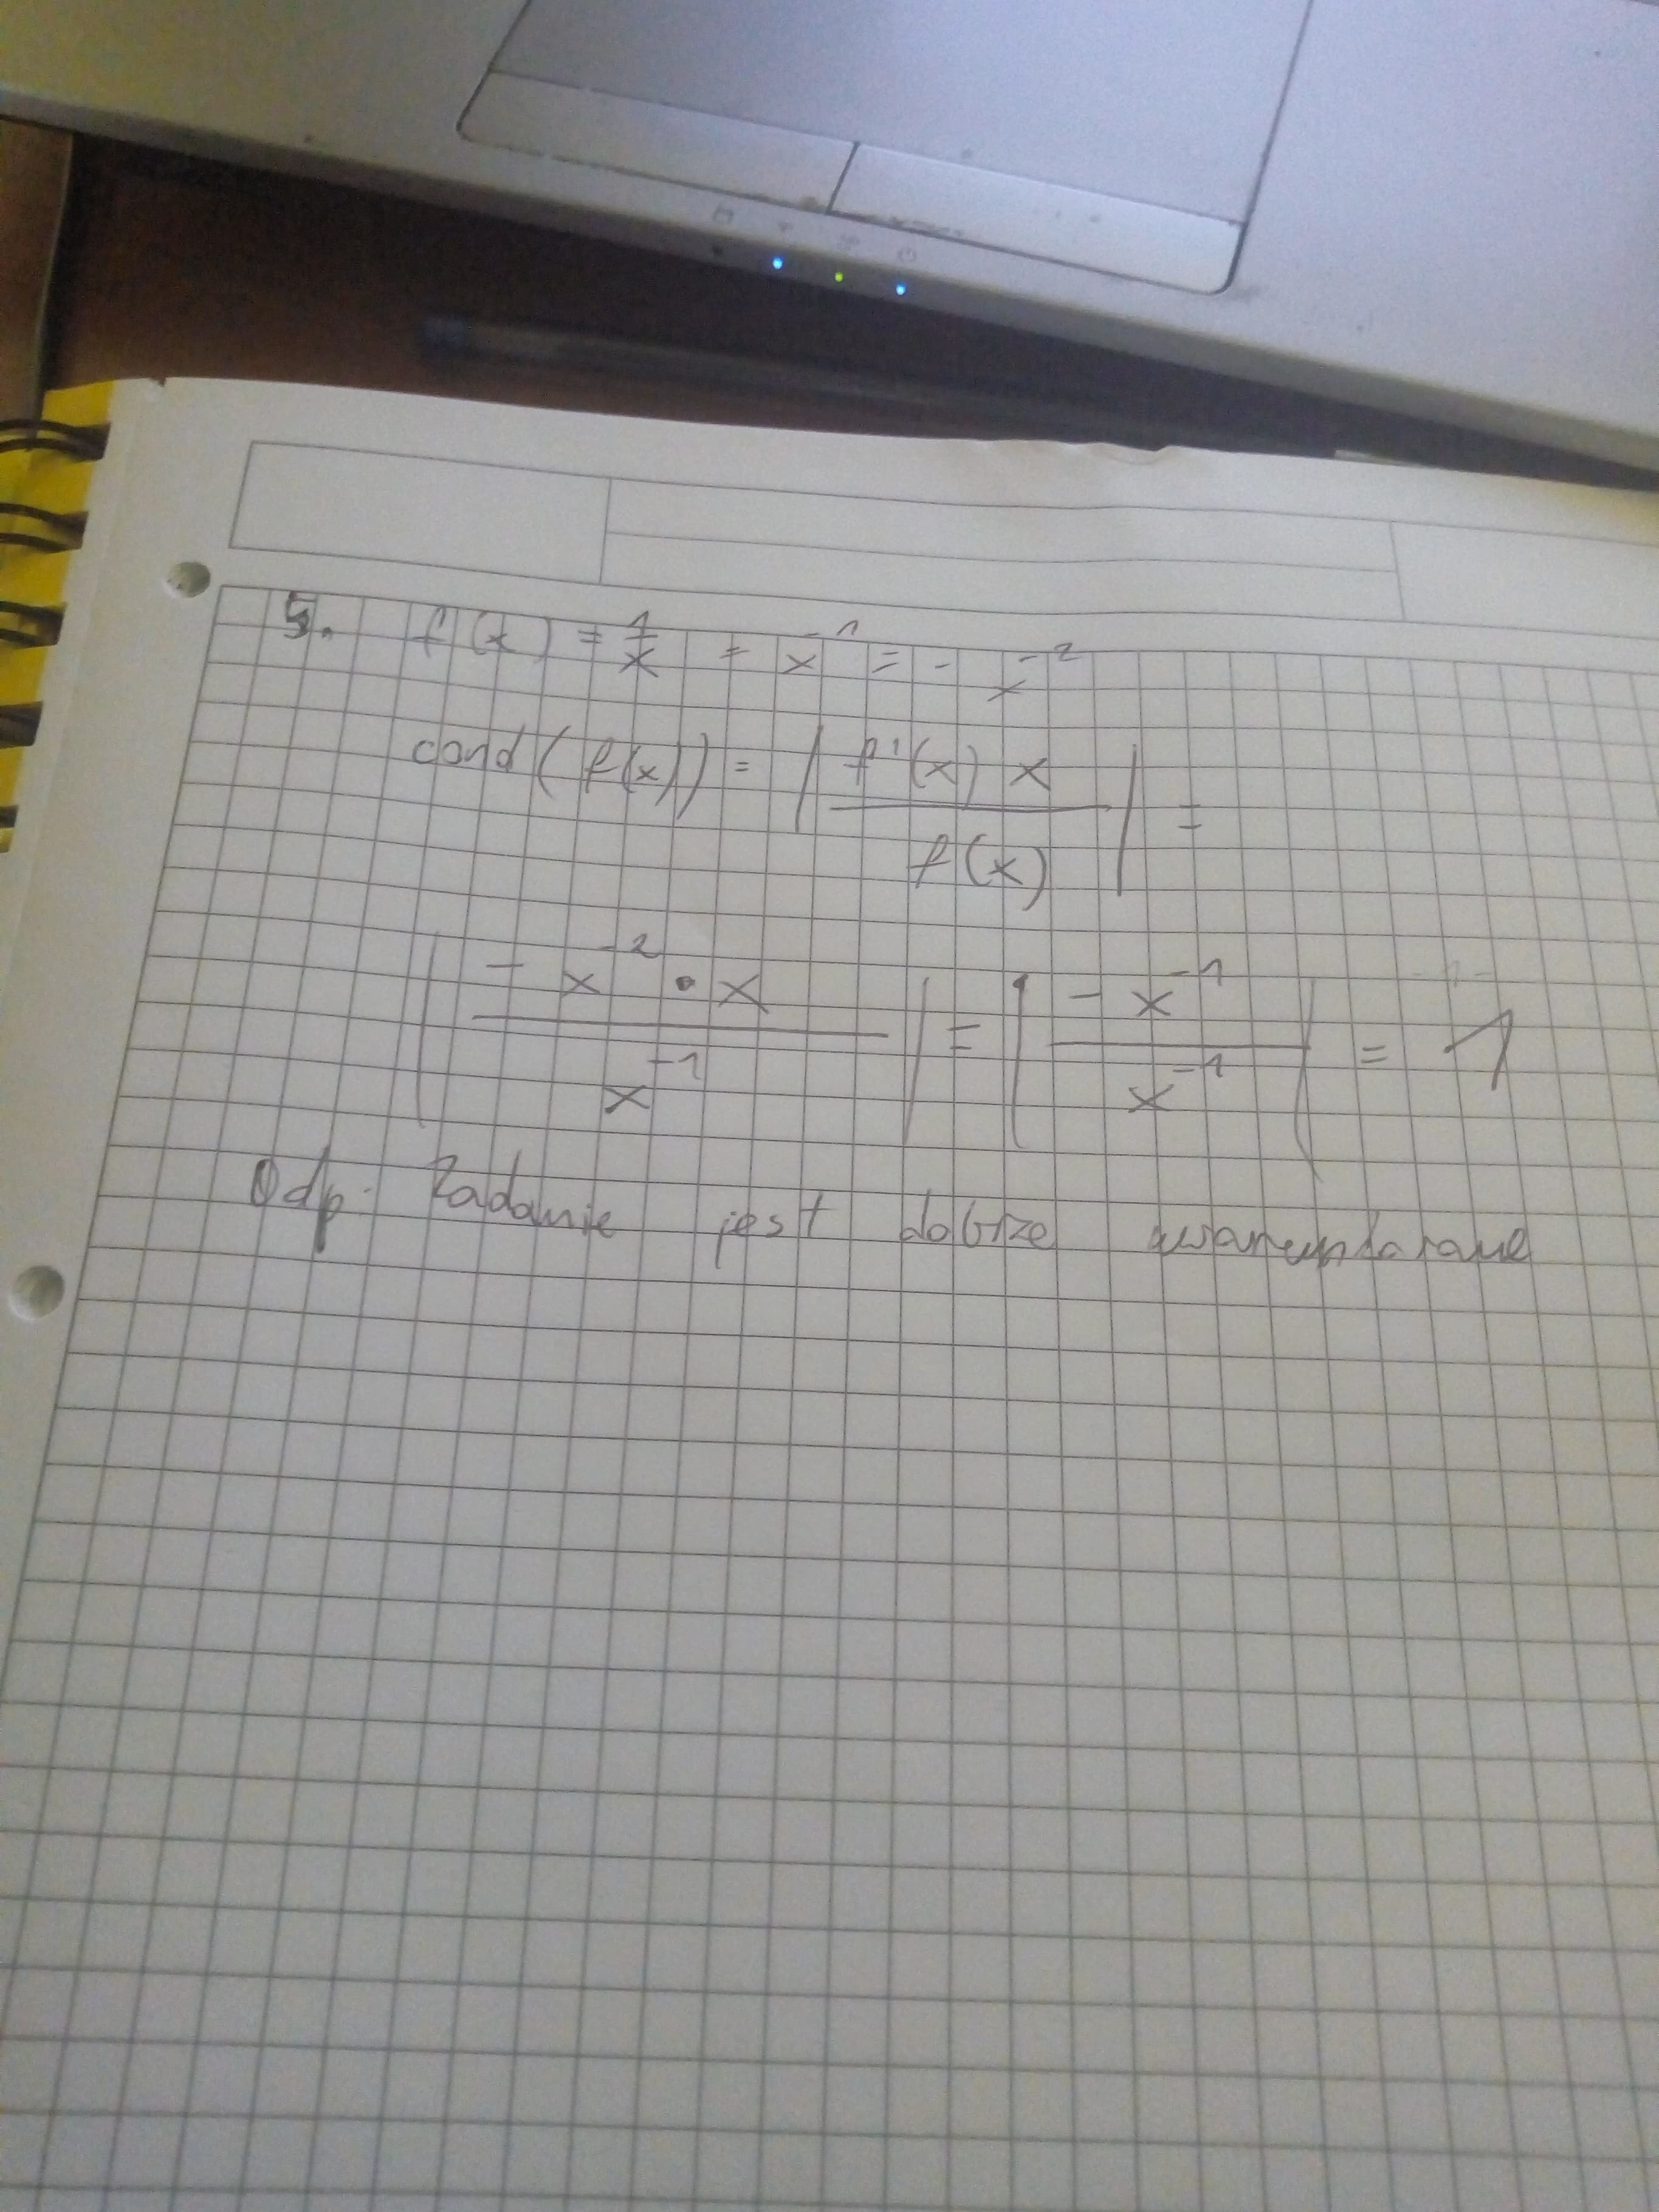 5. f(x) = 1/x = x^-1 = - x^-2
cond(f(x)) = | f'(x) x / f(x) | =
| - x^-2 · x / x^-1 | = | - x^-1 / x^-1 | = 1
Odp: Zadanie jest dobrze uwarunkowane